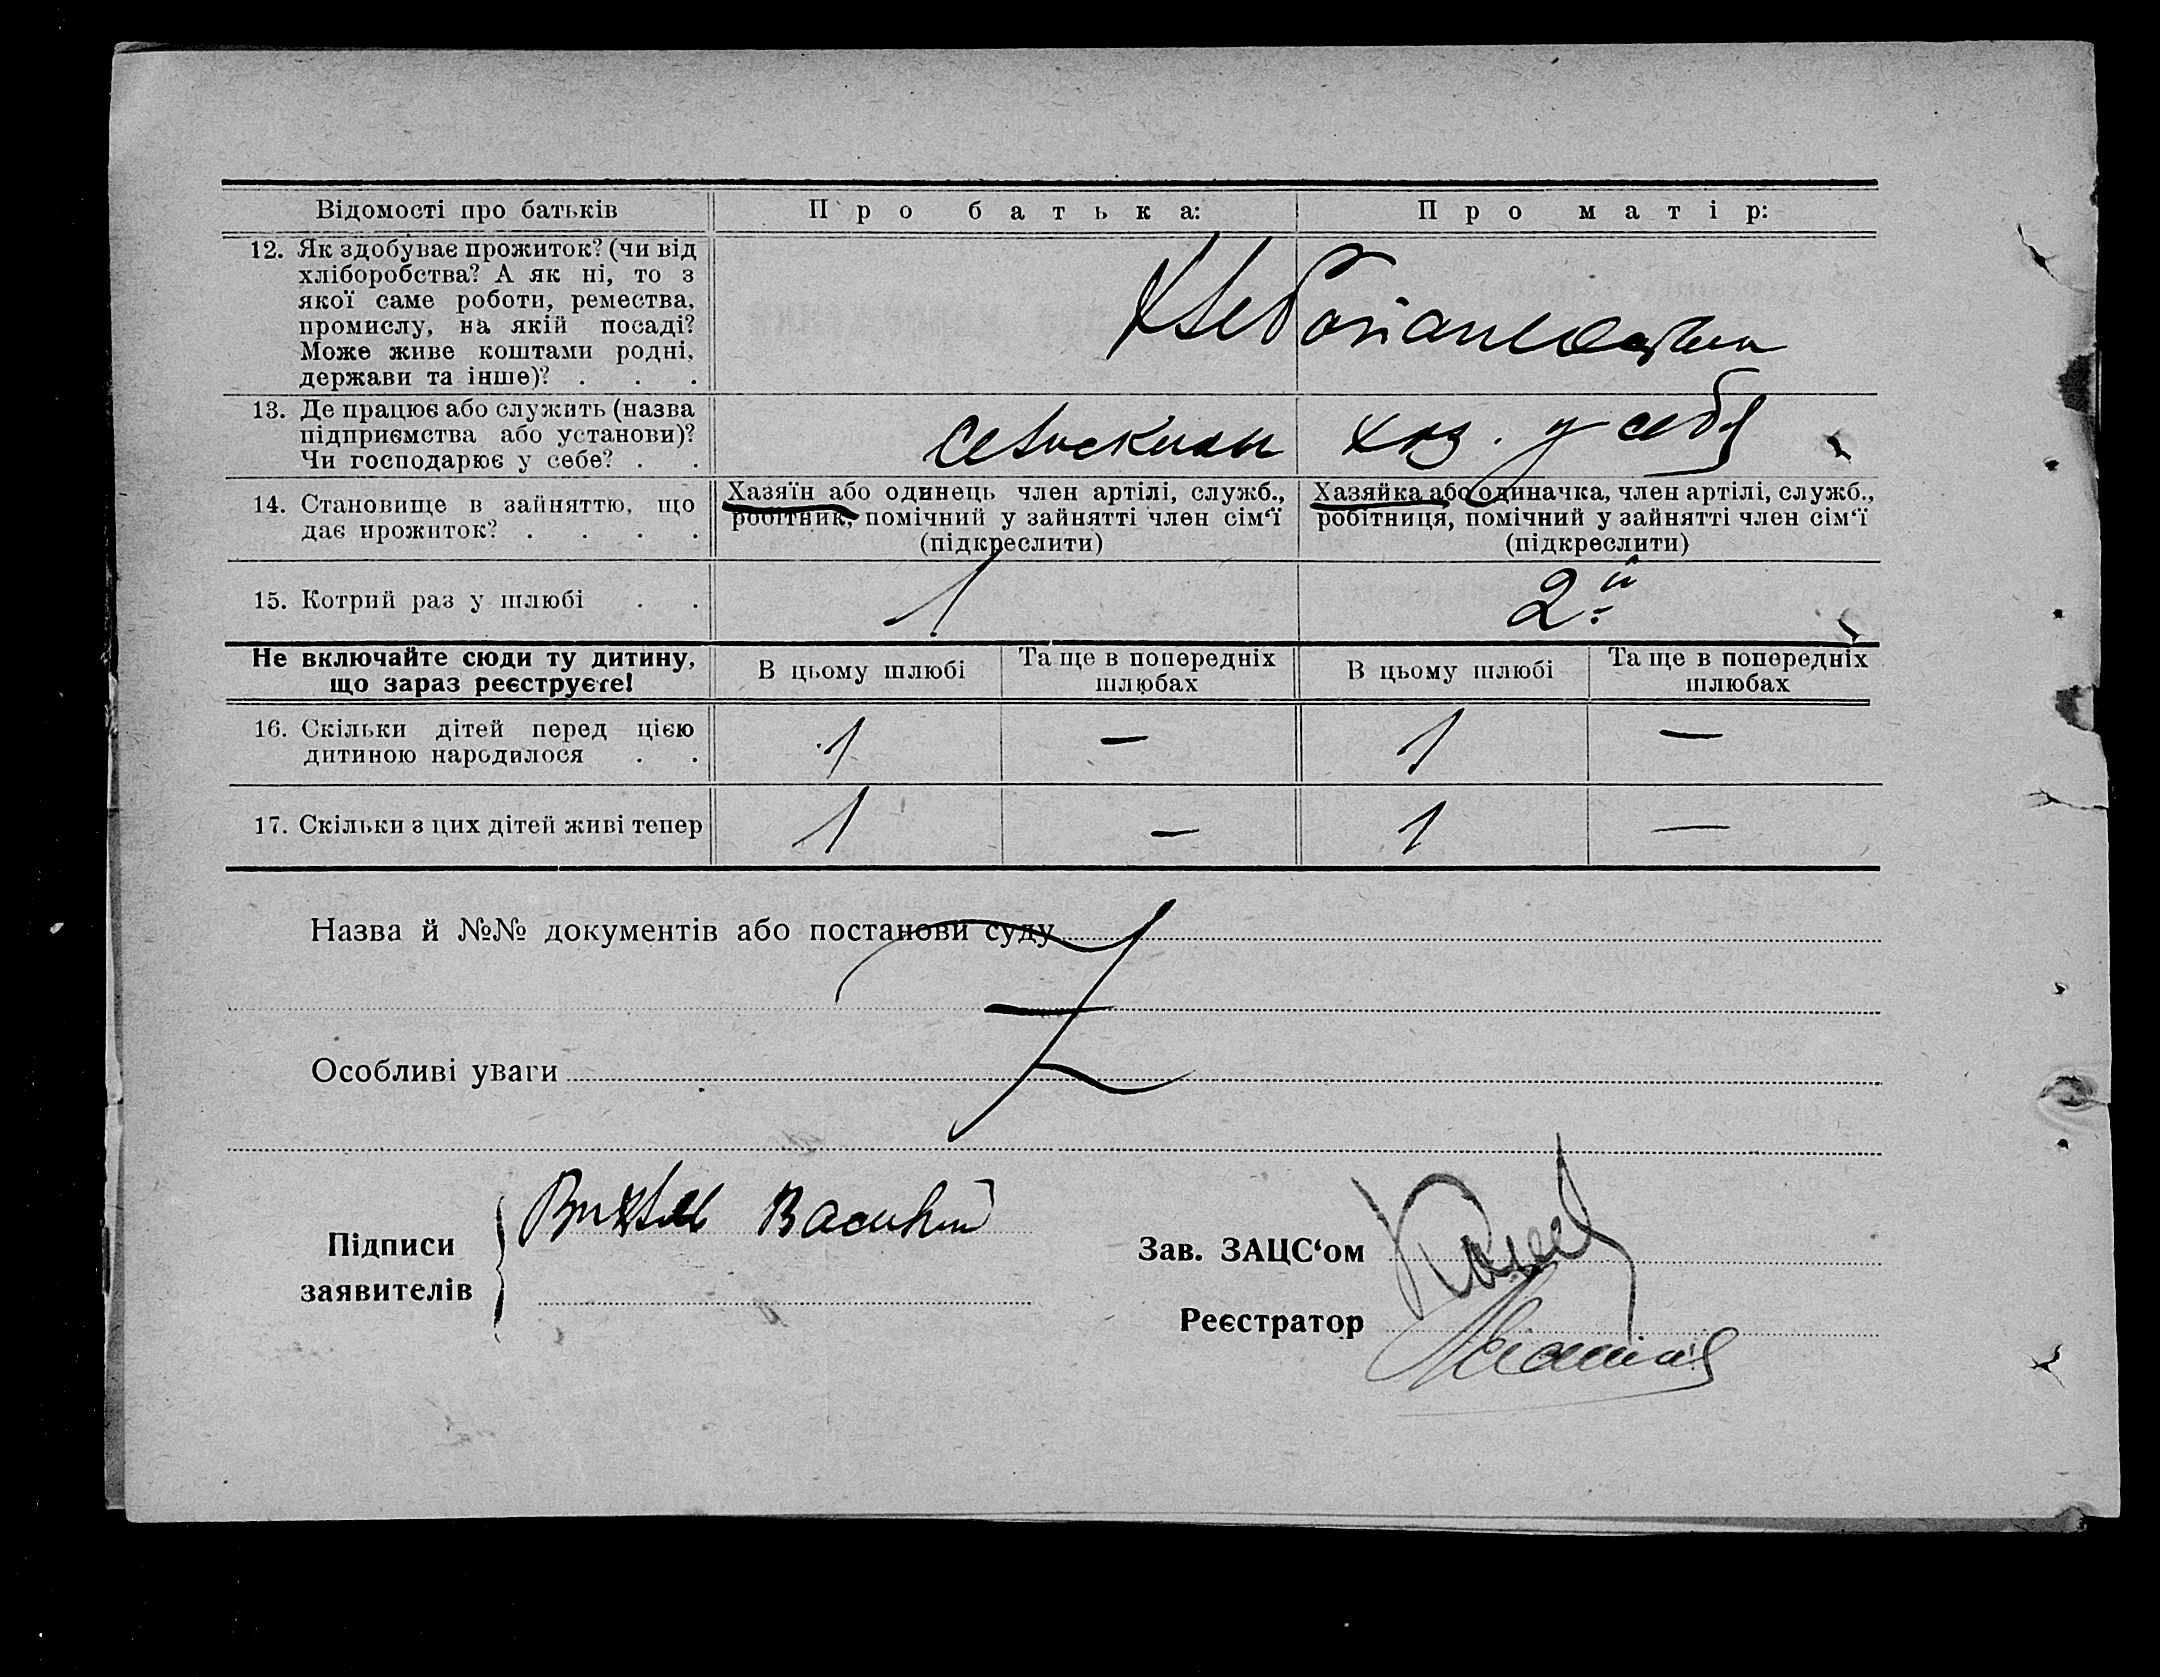 Відомості про батьків
Про батька:
Про матір:
12. Як здобуває прожиток? (чи від
хліборобства? А як ні, то з
якої саме роботи, ремества,
промислу, на якій посаді?
Може живе коштами родні,
держави та інше)? . . .
13. Де працює або служить (назва
підприємства або установи)?
Чи господарює у себе? . .
хоз. у себя
14. Становище в зайняттю, що
дає прожиток? . . . .
Хазяїн або одинець член артілі, служб.,
робітник, помічний у зайнятті член сім‘ї
(підкреслити)
Хазяйка або одиначка, член артілі, служб.,
робітниця, помічний у зайнятті член сім‘ї
(підкреслити)
15. Котрий раз у шлюбі . .
1
2й
Не включайте сюди ту дитину,
що зараз реєструєте!
В цьому шлюбі
Та ще в попередніх
шлюбах
В цьому шлюбі
Та ще в попередніх
шлюбах
16. Скільки дітей перед цією
дитиною народилося . .
1
—
1
—
17. Скільки з цих дітей живі тепер
1
—
1
—
Назва й №№ документів або постанови суду
Особливі уваги
Підписи
заявителів
Василий
Зав. ЗАЦС‘ом
Реєстратор